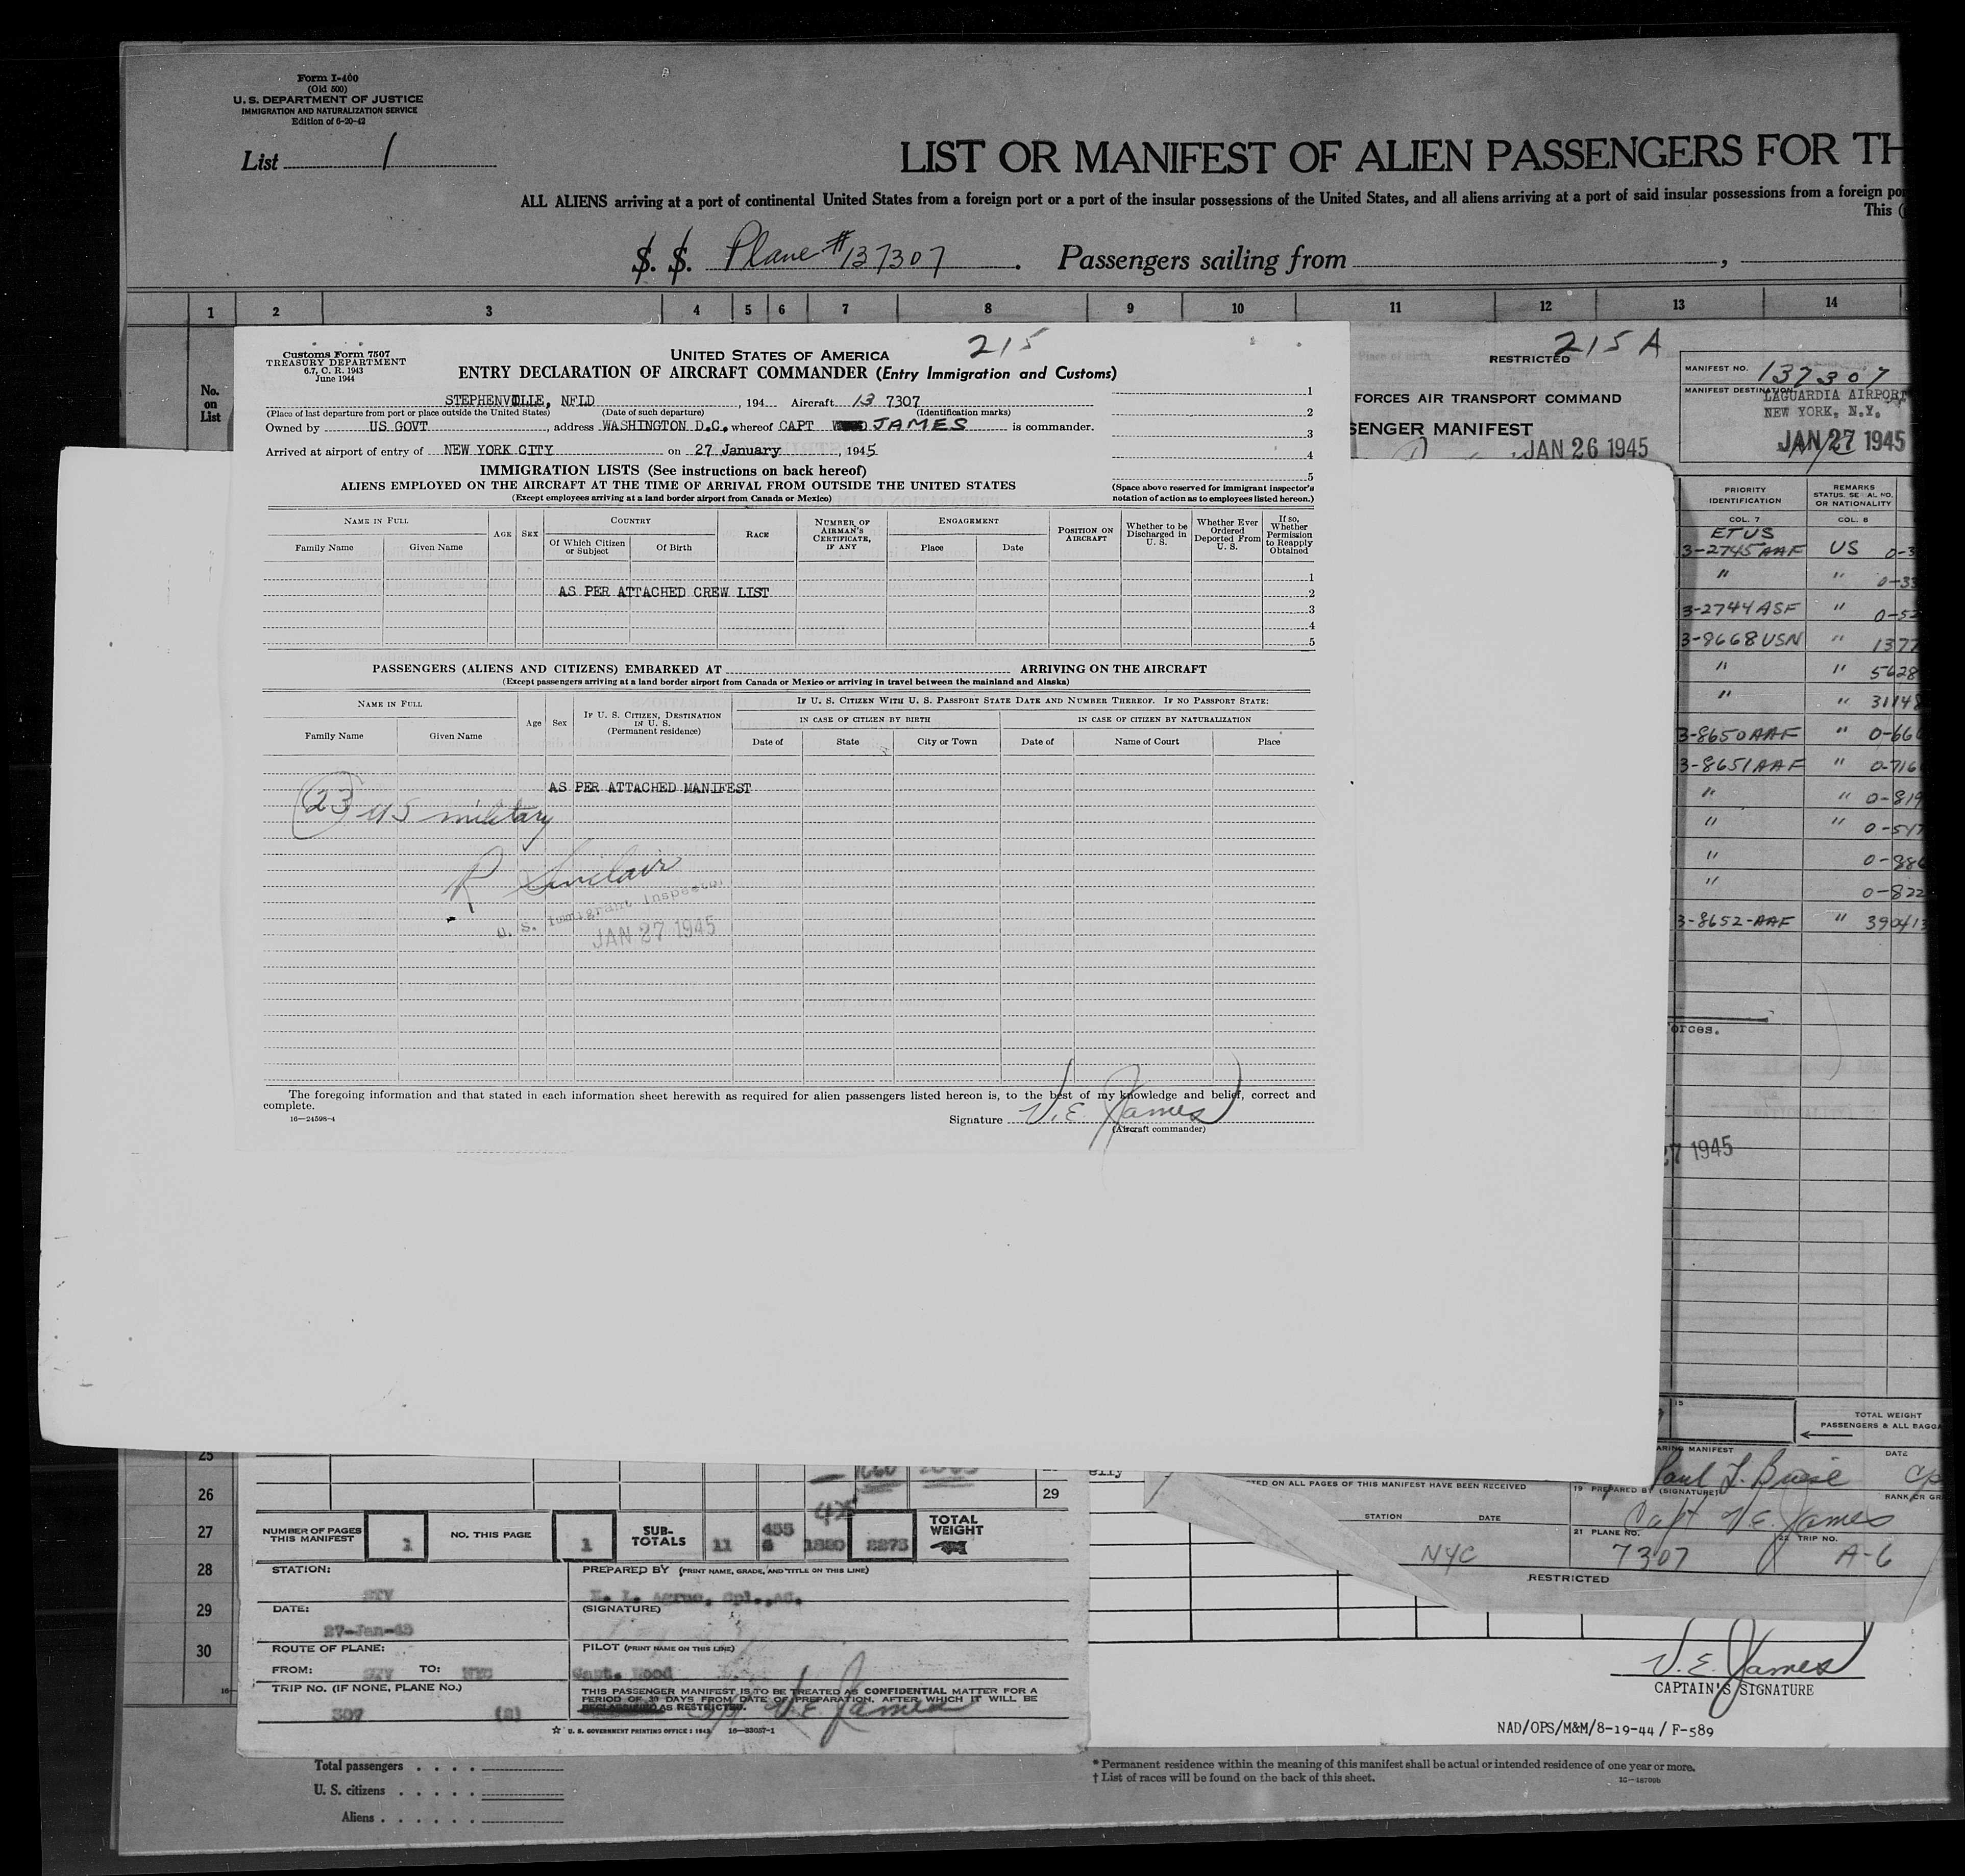 Form I-400
(Old 500)
U. S. DEPARTMENT OF JUSTICE
IMMIGRATION AND NATURALIZATION SERVICE
Edition of 6-20-42
List 1
LIST OR MANIFEST OF ALIEN PASSENGERS FOR TH
ALL ALIENS arriving at a port of continental United States from a foreign port or a port of the insular possessions of the United States, and all aliens arriving at a port of said insular possessions from a foreign por
This (
S. S. Plane #137307. Passengers sailing from ,
1 2 3 4 5 6 7 8 9 10 11 12 13 14
No. on List
Customs Form 7507
TREASURY DEPARTMENT
6.7, C. R. 1943
June 1944
UNITED STATES OF AMERICA
215
ENTRY DECLARATION OF AIRCRAFT COMMANDER (Entry Immigration and Customs)
STEPHENVILLE, NFLD , 194 Aircraft 13 7307
(Place of last departure from port or place outside the United States) (Date of such departure) (Identification marks)
Owned by US GOVT , address WASHINGTON D.C., whereof CAPT JAMES is commander.
Arrived at airport of entry of NEW YORK CITY on 27 January , 1945
1
2
3
4
5
IMMIGRATION LISTS (See instructions on back hereof)
ALIENS EMPLOYED ON THE AIRCRAFT AT THE TIME OF ARRIVAL FROM OUTSIDE THE UNITED STATES
(Except employees arriving at a land border airport from Canada or Mexico)
(Space above reserved for immigrant inspector's notation of action as to employees listed hereon.)
NAME IN FULL
Family Name Given Name
AGE SEX
COUNTRY
Of Which Citizen or Subject Of Birth
RACE
NUMBER OF AIRMAN'S CERTIFICATE, IF ANY
ENGAGEMENT
Place Date
POSITION ON AIRCRAFT
Whether to be Discharged in U. S.
Whether Ever Ordered Deported From U. S.
If so, Whether Permission to Reapply Obtained
1
AS PER ATTACHED CREW LIST 2
3
4
5
PASSENGERS (ALIENS AND CITIZENS) EMBARKED AT ARRIVING ON THE AIRCRAFT
(Except passengers arriving at a land border airport from Canada or Mexico or arriving in travel between the mainland and Alaska)
NAME IN FULL
Family Name Given Name
Age Sex
IF U. S. CITIZEN, DESTINATION IN U. S.
(Permanent residence)
IF U. S. CITIZEN WITH U. S. PASSPORT STATE DATE AND NUMBER THEREOF. IF NO PASSPORT STATE:
IN CASE OF CITIZEN BY BIRTH IN CASE OF CITIZEN BY NATURALIZATION
Date of State City or Town Date of Name of Court Place
AS PER ATTACHED MANIFEST
23 US military
R Sinclair
U. S. Immigrant Inspector
JAN 27 1945
The foregoing information and that stated in each information sheet herewith as required for alien passengers listed hereon is, to the best of my knowledge and belief, correct and
complete.
16—24598-4
Signature V. E. James
(Aircraft commander)
RESTRICTED 215 A
FORCES AIR TRANSPORT COMMAND
SENGER MANIFEST
JAN 26 1945
MANIFEST NO. 137307
MANIFEST DESTINATION LAGUARDIA AIRPORT
NEW YORK, N.Y.
JAN 27 1945
PRIORITY IDENTIFICATION
REMARKS STATUS, SERIAL NO. OR NATIONALITY
COL. 7 COL. 8
ETUS
3-2745 AAF US 0-3
" " 0-33
3-2744 ASF " 0-52
3-8668 USN " 1377
" " 5628
" " 31148
3-8650 AAF " 0-666
3-8651 AAF " 0-716
" " 0-819
" " 0-517
" 0-886
" 0-822
3-8652-AAF " 390413
orces.
7 1945
TOTAL WEIGHT
PASSENGERS & ALL BAGGA
ARING MANIFEST DATE
RANK OR GR
TED ON ALL PAGES OF THIS MANIFEST HAVE BEEN RECEIVED
19 PREPARED BY (SIGNATURE)
Capt V. E. James
STATION DATE
21 PLANE NO. 22 TRIP NO.
NYC 7307 A-6
RESTRICTED
V. E. James
CAPTAIN'S SIGNATURE
NAD/OPS/M&M/8-19-44 / F-589
25
26
27
28
29
30
29
NUMBER OF PAGES THIS MANIFEST 1
NO. THIS PAGE 1
SUB-TOTALS 11 455 1820 2275
TOTAL WEIGHT
STATION: STV
PREPARED BY (PRINT NAME, GRADE, AND TITLE ON THIS LINE)
DATE: 27-Jan-45
(SIGNATURE)
ROUTE OF PLANE:
FROM: STV TO: NYC
PILOT (PRINT NAME ON THIS LINE)
Capt. Wood
TRIP NO. (IF NONE, PLANE NO.)
307
THIS PASSENGER MANIFEST IS TO BE TREATED AS CONFIDENTIAL MATTER FOR A
PERIOD OF 30 DAYS FROM DATE OF PREPARATION, AFTER WHICH IT WILL BE
AS RESTRICTED.
V. E. James
☆ U. S. GOVERNMENT PRINTING OFFICE : 1943 16—33057-1
Total passengers
U. S. citizens
Aliens
* Permanent residence within the meaning of this manifest shall be actual or intended residence of one year or more.
† List of races will be found on the back of this sheet.